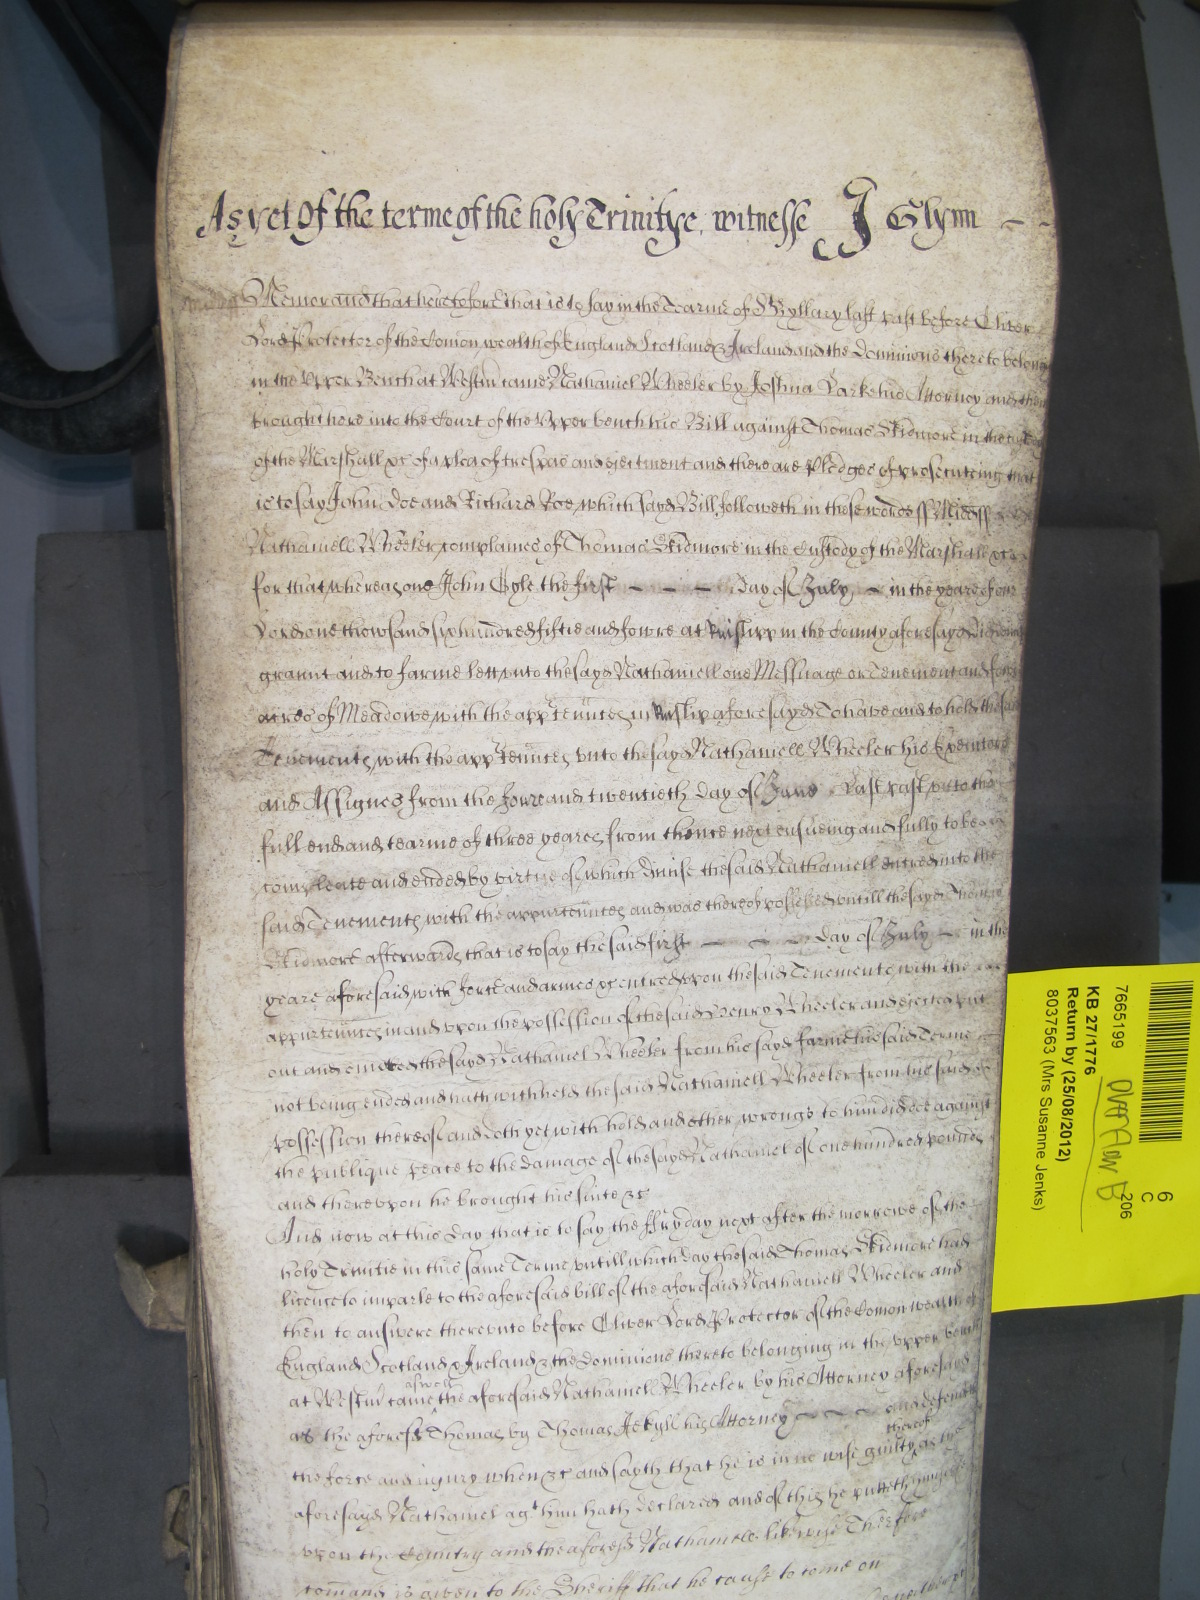 As yet Of the terme of the holy Trinitye. witnesse J Glynn
Memorand that heretofore that is to say in the Tearme of St Hyllary last past before Oliver
Lord Protector of the Comon wealth of England Scotland & Ireland and the dominions thereto belong
in the Upper Bench at Westm came Nathaniel Wheeler by Joshua Larke his Attorney and then
brought here into the Court of the Upper bench his Bill against Thomas Skidmore in the
of the Marshall &c of a plea of trespas and ejectment and there are Pledges of prosecuteing that
is to say John Doe and Richard Roe which sayd Bill followeth in these words ss Middss
Nathaniell Wheeler complaines of Thomas Skidmore in the Custody of the Marshall &c
for that whereas one John Ogle the first day of July in the yeare of our
Lord one thowsand six hundred fiftie and fowre at Ruislipp in the County aforesayd
graunt and to farme lett unto the sayd Nathaniell one Messuage or Tenement and
acres of Meadowe with the appurtennces in Ruslip aforesayd To have and to hold the said
Tenements with the appurtennces unto the sayd Nathaniell Wheeler his Executors
and Assignes from the fowre and twentieth day of June Last past unto the
full end and tearme of three yeares from thence next ensueing and fully to be
compleate and ended by virtue of which demise the said Nathaniell entred into the
said Tenements with the appurtennces and was thereof possessed untill the sayd Thomas
Skidmore afterwards that is to say the said first day of July in the
yeare aforesaid with force and armes &c entred upon the said Tenements with the
appurtennces in and upon the possession of the said Henry Wheeler and ejected put
out and emoved the sayd Nathaniel Wheeler from his sayd farme his said Terme
not being ended and hath withheld the said Nathaniell Wheeler from his said
possession thereof and doth yet with hold and other wrongs to him did doe against
the publique peace to the damage of the sayd Nathaniel of one hundred pounds
and thereupon he brought his suite &c
And now at this day that is to say the ffryday next after the morrowe of the
holy Trinitie in this same Terme untill which day the said Thomas Skidmore had
licence to imparle to the aforesaid bill of the aforesaid Nathaniell Wheeler and
then to answere thereunto before Oliver Lord Protector of the Comon wealth of
England Scotland & Ireland & the dominions thereto belonging in the upper bench
at Westm came aswell the aforesaid Nathaniell Wheeler by his Attorney aforesayd
as the aforesd Thomas by Thomas Jekyll his Attorney and defendeth
the force and injury when &c and sayth that he is in no wise guilty thereof as the
aforesayd Nathaniel agt him hath declared and of this he putteth himselfe
upon the Country and the aforesd Nathaniell likewise Therfore
comand is given to the Sheriff that he cause to come on
7665199
KB 27/1776
Return by (25/08/2012)
8037563 (Mrs Susanne Jenks)
6
C
206